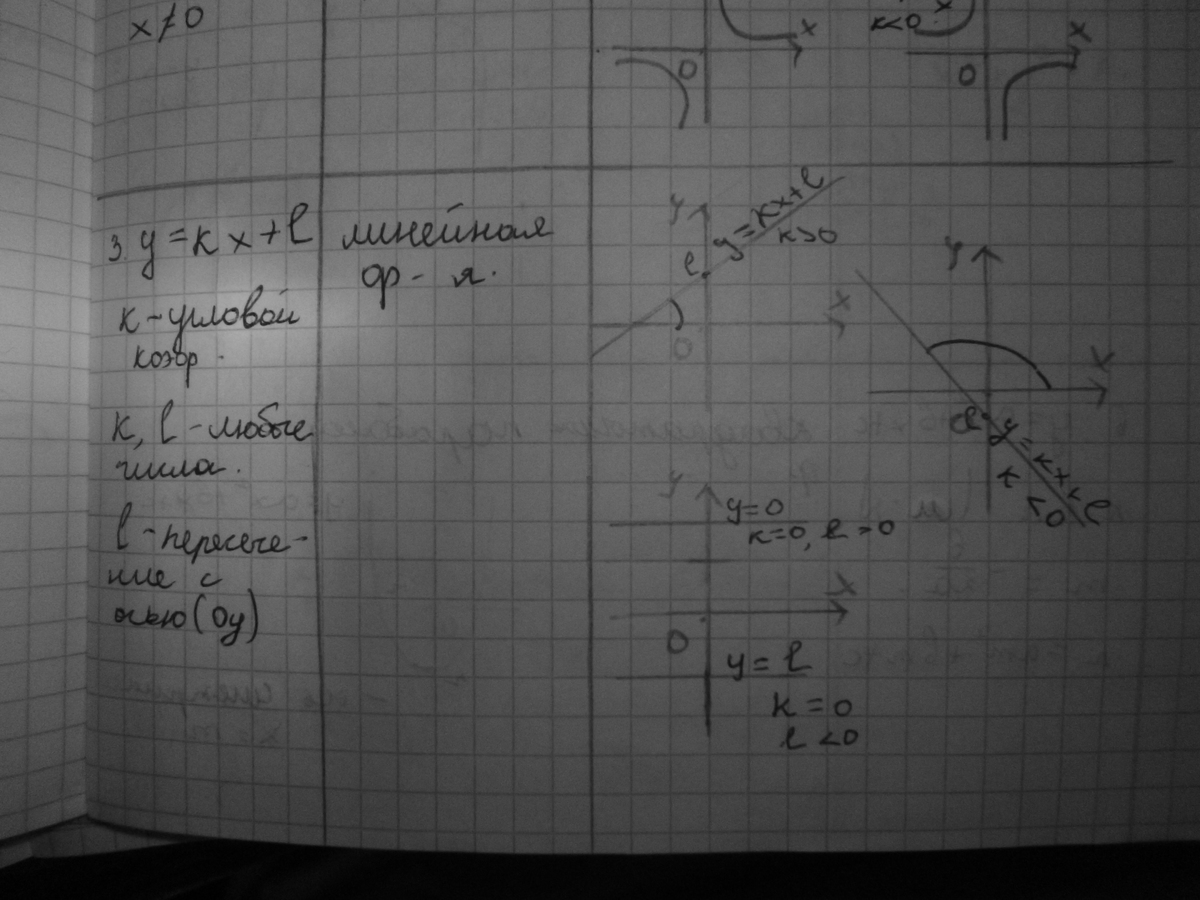 x≠0
x
0
k<0
x
x
0
3. y=kx+l
линейная
ф-я.
k-угловой
коэф.
k, l-любые
числа.
l-пересече-
ние с
осью(Oy)
y
y=kx+l
k>0
l
x
0
y
x
l
y=kx+l
k<0
y
y=0
k=0, l>0
x
0
y=l
k=0
l<0